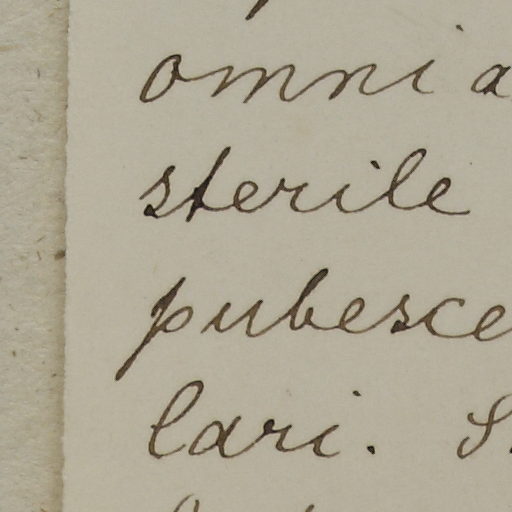 omnia
sterile
pubesce
lari. S